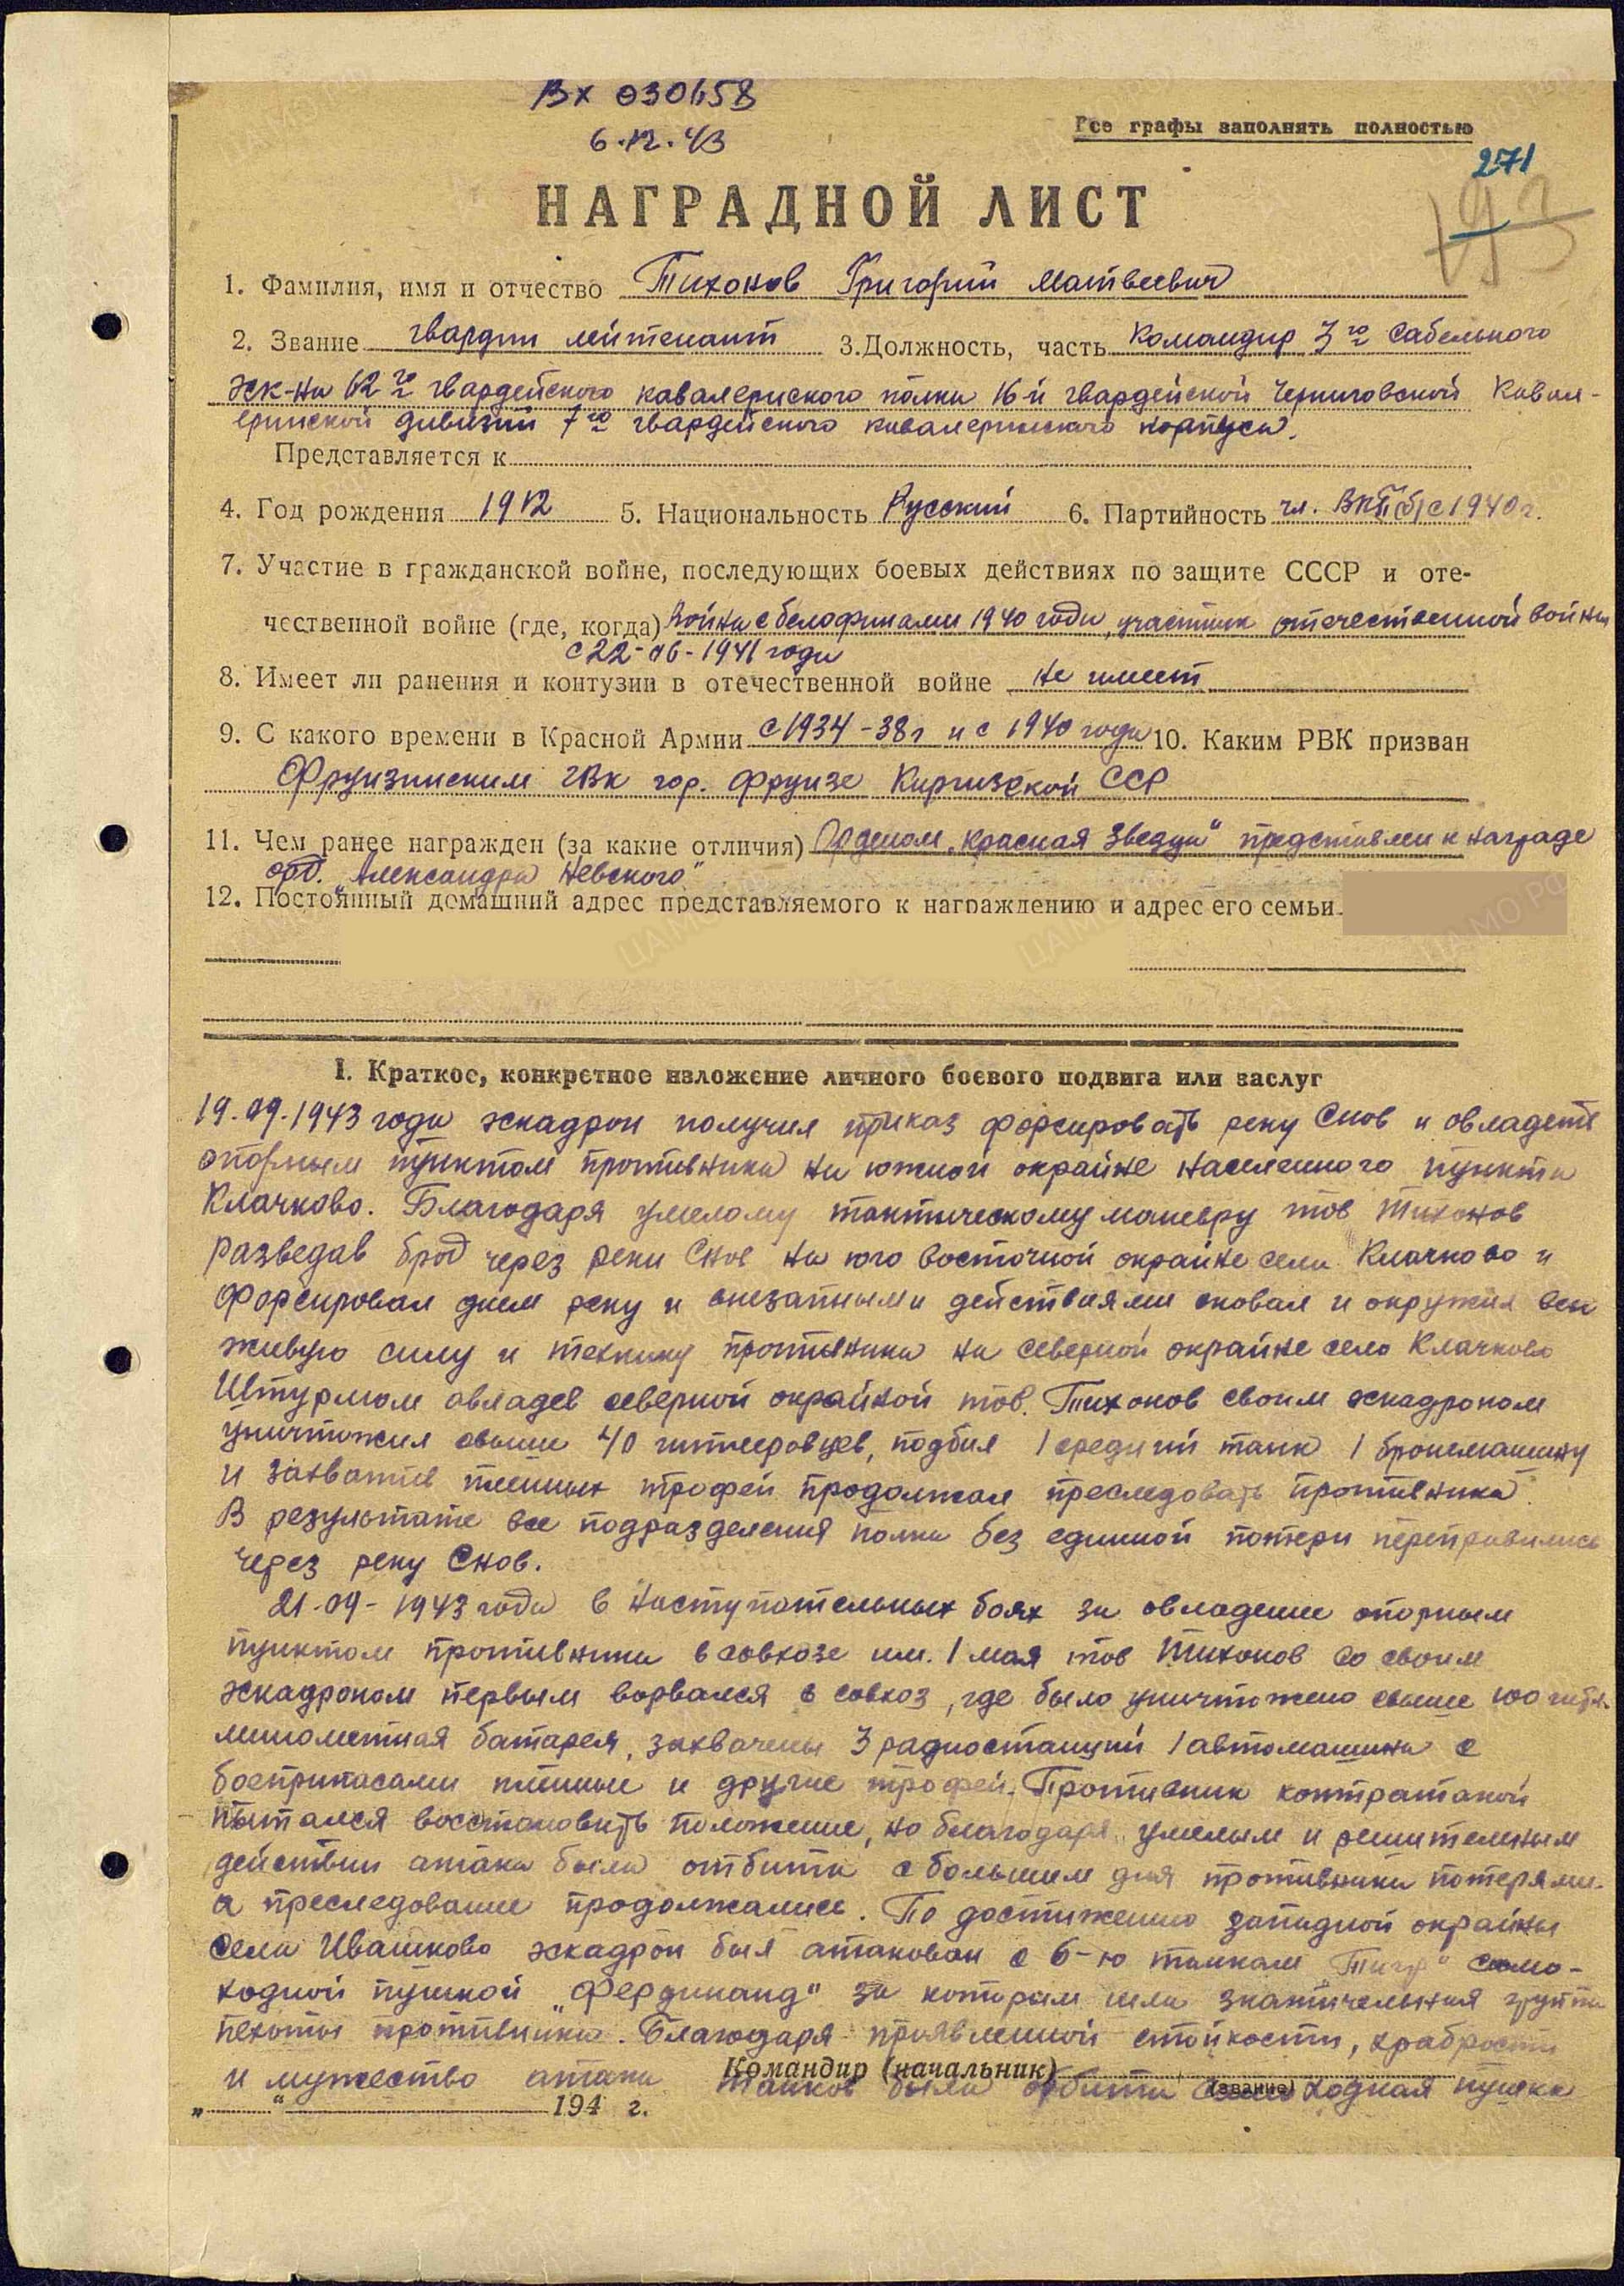 Вх 030658
6.12.43
Все графы заполнять полностью
271
193
НАГРАДНОЙ ЛИСТ
1. Фамилия, имя и отчество Тихонов Григорий Матвеевич
2. Звание гвардии лейтенант 3. Должность, часть Командир 3го сабельного
эск-на 62го гвардейского кавалериского полка 16-й гвардейской Черниговской Кавал-
ерийской дивизии 7го гвардейского кавалерийского корпуса.
Представляется к
4. Год рождения 1912 5. Национальность Русский 6. Партийность чл. ВКП(б) с 1940 г.
7. Участие в гражданской войне, последующих боевых действиях по защите СССР и оте-
чественной войне (где, когда) Война с белофинами 1940 года, участник отечественной войны
с 22-06-1941 года
8. Имеет ли ранения и контузии в отечественной войне не имеет
9. С какого времени в Красной Армии с 1934-38 г и с 1940 года 10. Каким РВК призван
Фрунзинским ГВК гор. Фрунзе Киргизской ССР
11. Чем ранее награжден (за какие отличия) Орденом „Красная Звезда" представлен к награде
орд. „Александра Невского"
12. Постоянный домашний адрес представляемого к награждению и адрес его семьи
I. Краткое, конкретное изложение личного боевого подвига или заслуг
19.09.1943 года эскадрон получил приказ форсировать реку Снов и овладеть
опорным пунктом противника на южной окрайне населенного пункта
Клачково. Благодаря умелому тактическому маневру тов Тихонов
разведав брод через реки Снов на юго восточной окрайне села Клачково и
форсировал днем реку и внезапными действиями сковал и окружил всю
живую силу и технику противника на северной окрайне село Клачково
Штурмом овладев северной окрайной тов. Тихонов своим эскадроном
уничтожил свыше 40 гитлеровцев, подбил 1 средний танк 1 бронемашину
и захватив пленных трофеи продолжал преследовать противника.
В результате все подразделения полка без единной потери переправились
через реку Снов.
21-09-1943 года в наступательных боях за овладение опорным
пунктом противника в совхозе им. 1 мая тов Тихонов со своим
эскадроном первым ворвался в совхоз, где было уничтожено свыше 100 гитл.
минометная батарея, захвачены 3 радиостанций 1 автомашина с
боеприпасами пленные и другие трофеи. Противник контратакой
пытался восстановить положение, но благодаря умелым и решительным
действии атака была отбита с большим для противника потерями.
а преследование продолжались. По достижению западной окрайны
села Ивашково эскадрон был атакован с 6-ю танкам „Тигр" само-
ходной пушкой „Фердинанд" за которым шла значительная группа
пехоты противника. Благодаря проявленной стойкости, храбрости
и мужество атаки танков была отбита ходная пушка
Командир (начальник)
(звание)
„ " 194 г.